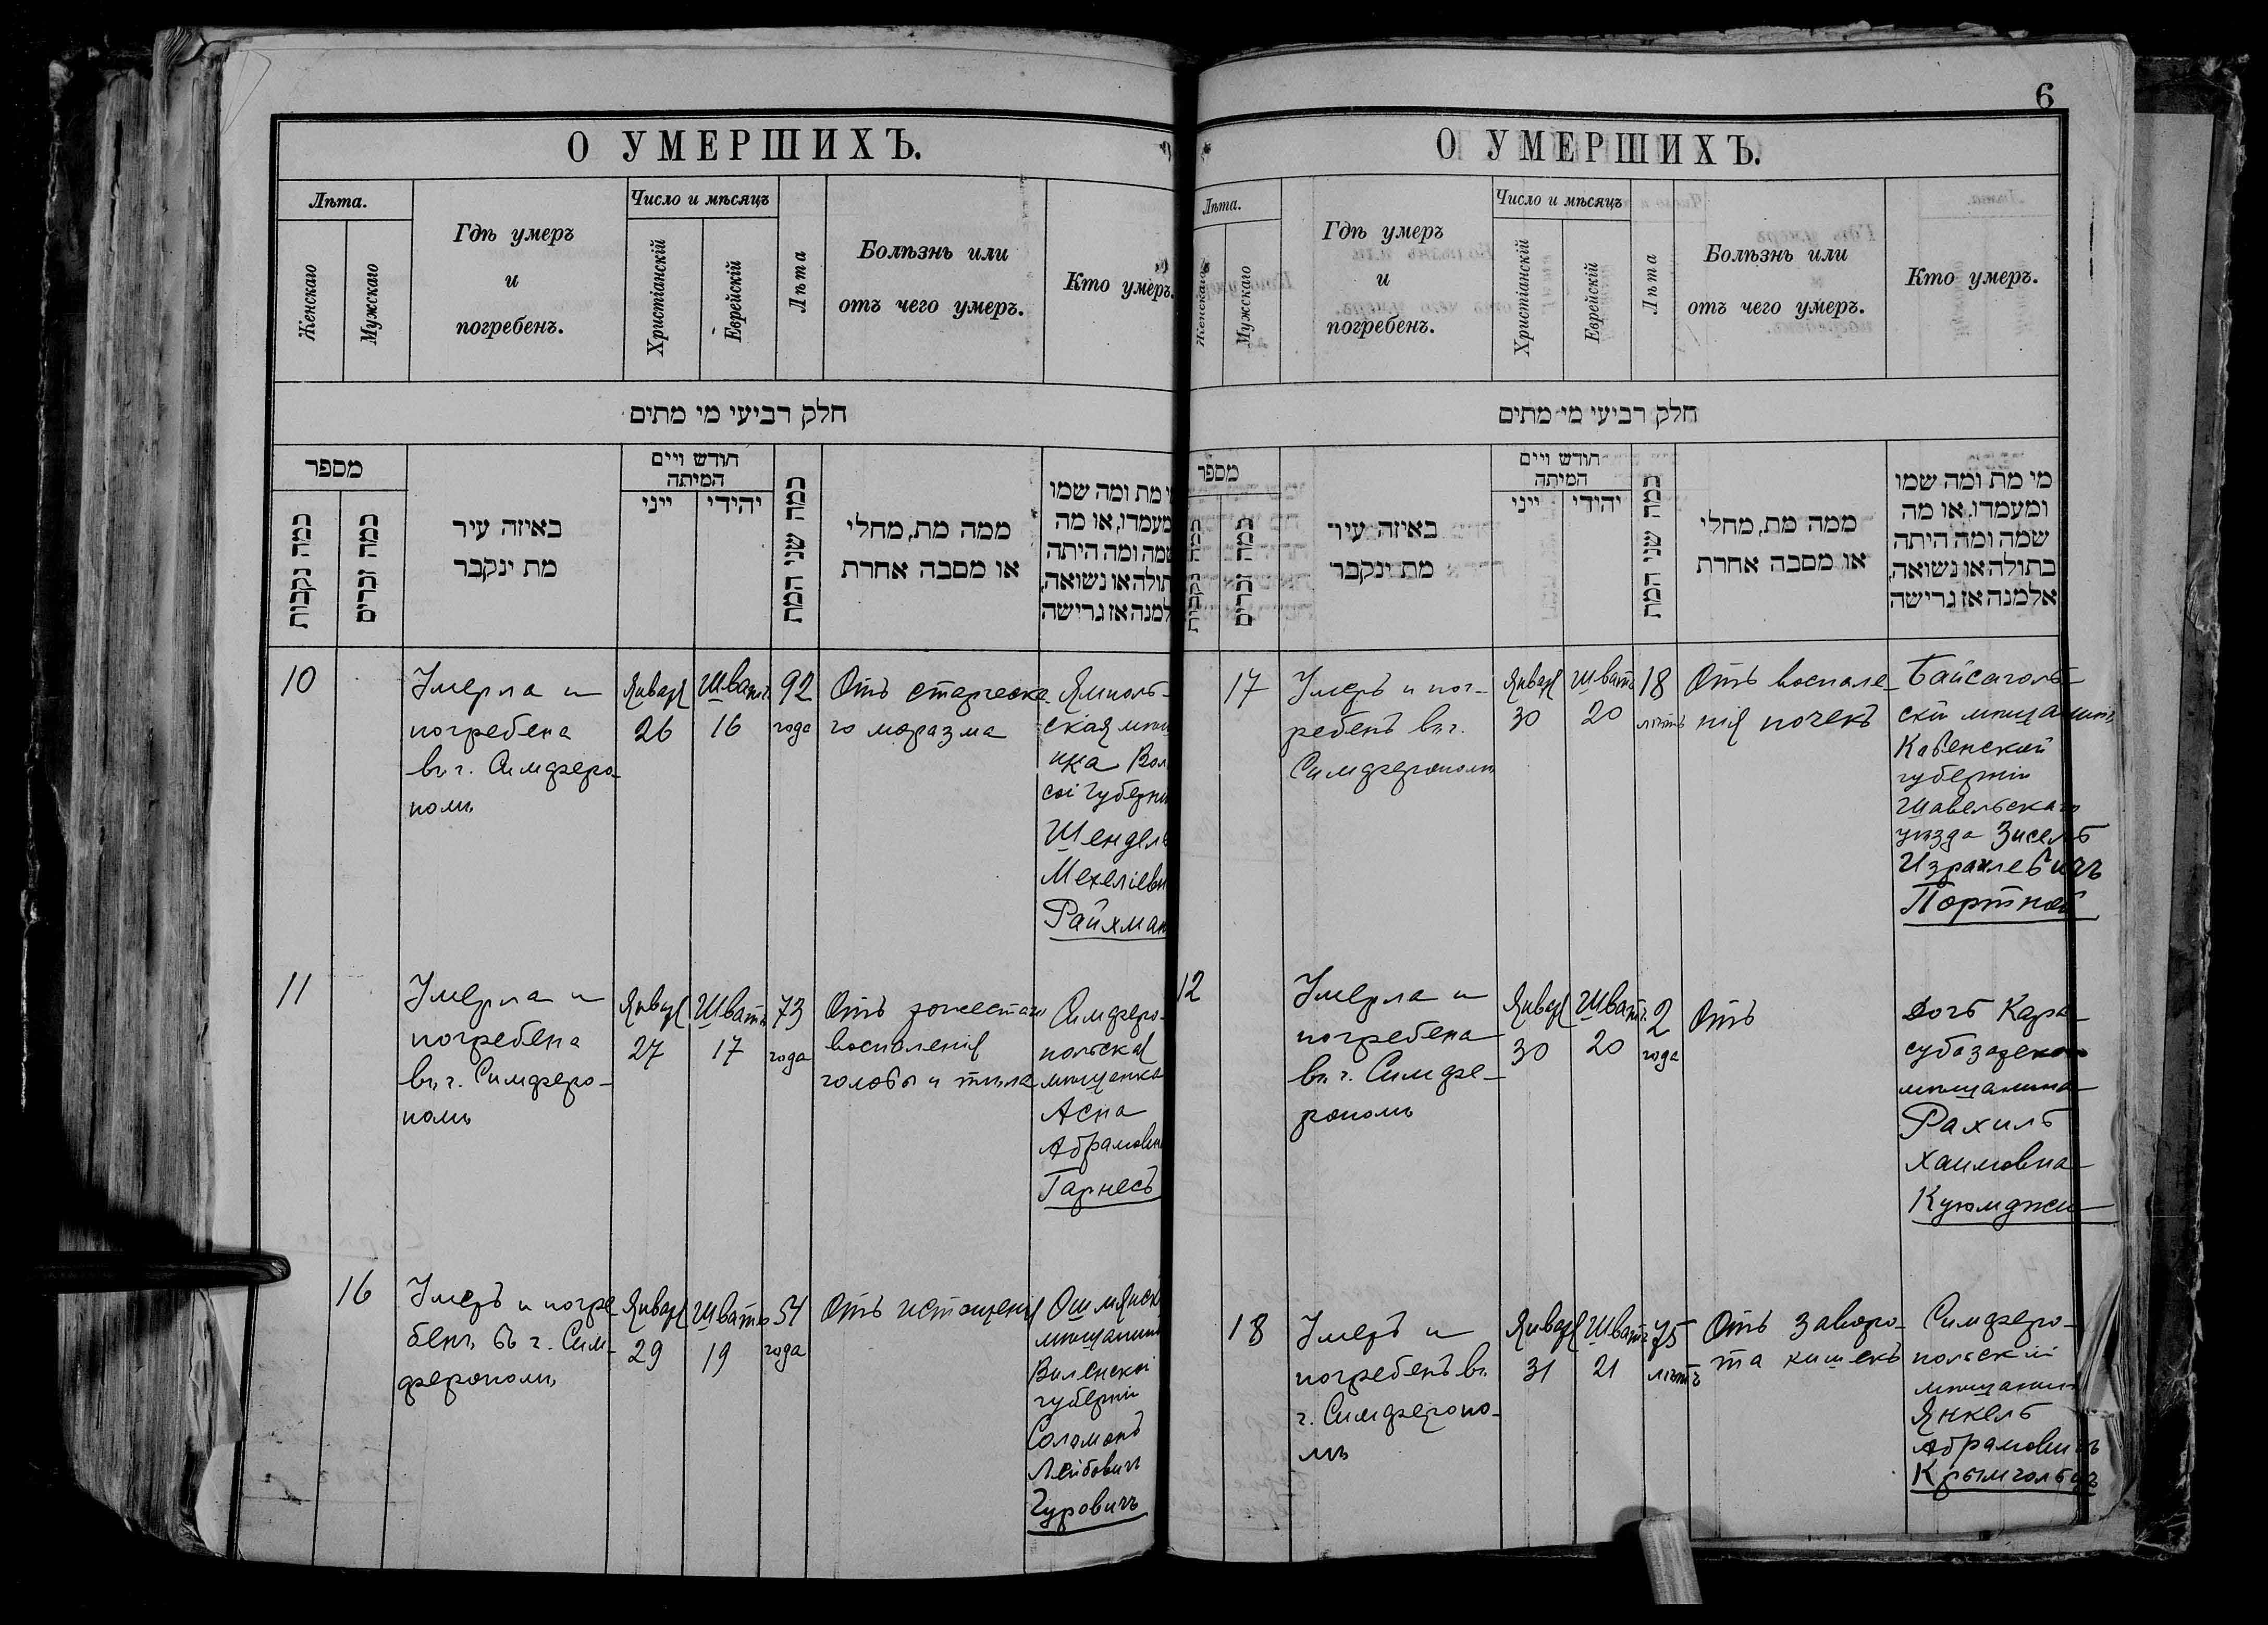 О УМЕРШИХЪ.
Лѣта.
Женскаго
Мужскаго
Гдѣ умеръ
и
погребенъ.
Число и мѣсяцъ
Христіанскій
Еврейскій
Лѣта
Болѣзнь или
отъ чего умеръ.
Кто умеръ.
חלק רביעי מי מתים
מספר
כמה נקבות
כמה זכרים
באיזה עיר
מת ינקבר
חודש ויים
המיתה
ייני
יהידי
כמה שני המת
ממה מת, מחלי
או מסבה אחרת
מי מת ומה שמו
מעמדו, או מה
שמה ומה היתה
תולה או נשואה,
למנה אז גרישה
10
Умерла и
погребена
въ г. Симферо-
полѣ
Январ
26
Шватъ
16
92
года
Отъ старческа-
го маразма
Ямполь-
ская мѣщ
нка Вол
сой Губерни
Шендель
Мехелiевн
Райхман
11
Умерла и
погребена
въ г. Симферо-
полѣ
Январ
27
Шватъ
17
73
года
Отъ рожестаго
воспаленія
головы и тѣла
Симферо-
польская
мѣщанка
Асна
Абрамовн
Гарнесъ
16
Умеръ и погре-
бенъ въ г. Сим-
ферополѣ
Январ
29
Шватъ
19
54
года
Отъ истощенія
Ошмянск
мѣщанинъ
Виленской
губерніи
Соломонъ
Лейбовичъ
Гуровичъ
6
О УМЕРШИХЪ.
Лѣта.
Женскаго
Мужскаго
Гдѣ умеръ
и
погребенъ.
Число и мѣсяцъ
Христіанскій
Еврейскій
Лѣта
Болѣзнь или
отъ чего умеръ.
Кто умеръ.
חלק רביעי מי מתים
מספר
כמה נקבות
כמה זכרים
באיזה עיר
מת ינקבר
חודש ויים
המיתה
ייני
יהודי
כמה שני המת
ממה מת, מחלי
או מסבה אחרת
מי מת ומה שמו
ומעמדו, או מה
שמה ומה היתה
בתולה או נשואה,
אלמנה אז גרישה
17
Умеръ и пог-
ребенъ въ г.
Симферополѣ
Январ
30
Шватъ
20
18
лѣтъ
Отъ воспале-
нія почекъ
Байсаголь-
скій мѣщанинъ
Ковенской
губерніи
Шавельскаго
уѣзда Зисель
Израилевичъ
Портной
12
Умерла и
погребена
въ г. Симфе-
рополѣ
Январ
30
Шватъ
20
2
года
Отъ
Дочь Кара-
субазарскаго
мѣщанина
Рахиль
Хаимовна
Куюмджи
18
Умеръ и
погребенъ въ
г. Симферопо-
лѣ
Январ
31
Шватъ
21
75
лѣтъ
Отъ заворо-
та кишекъ
Симферо-
польскій
мѣщанинъ
Янкель
Абрамовичъ
Крымгольцъ